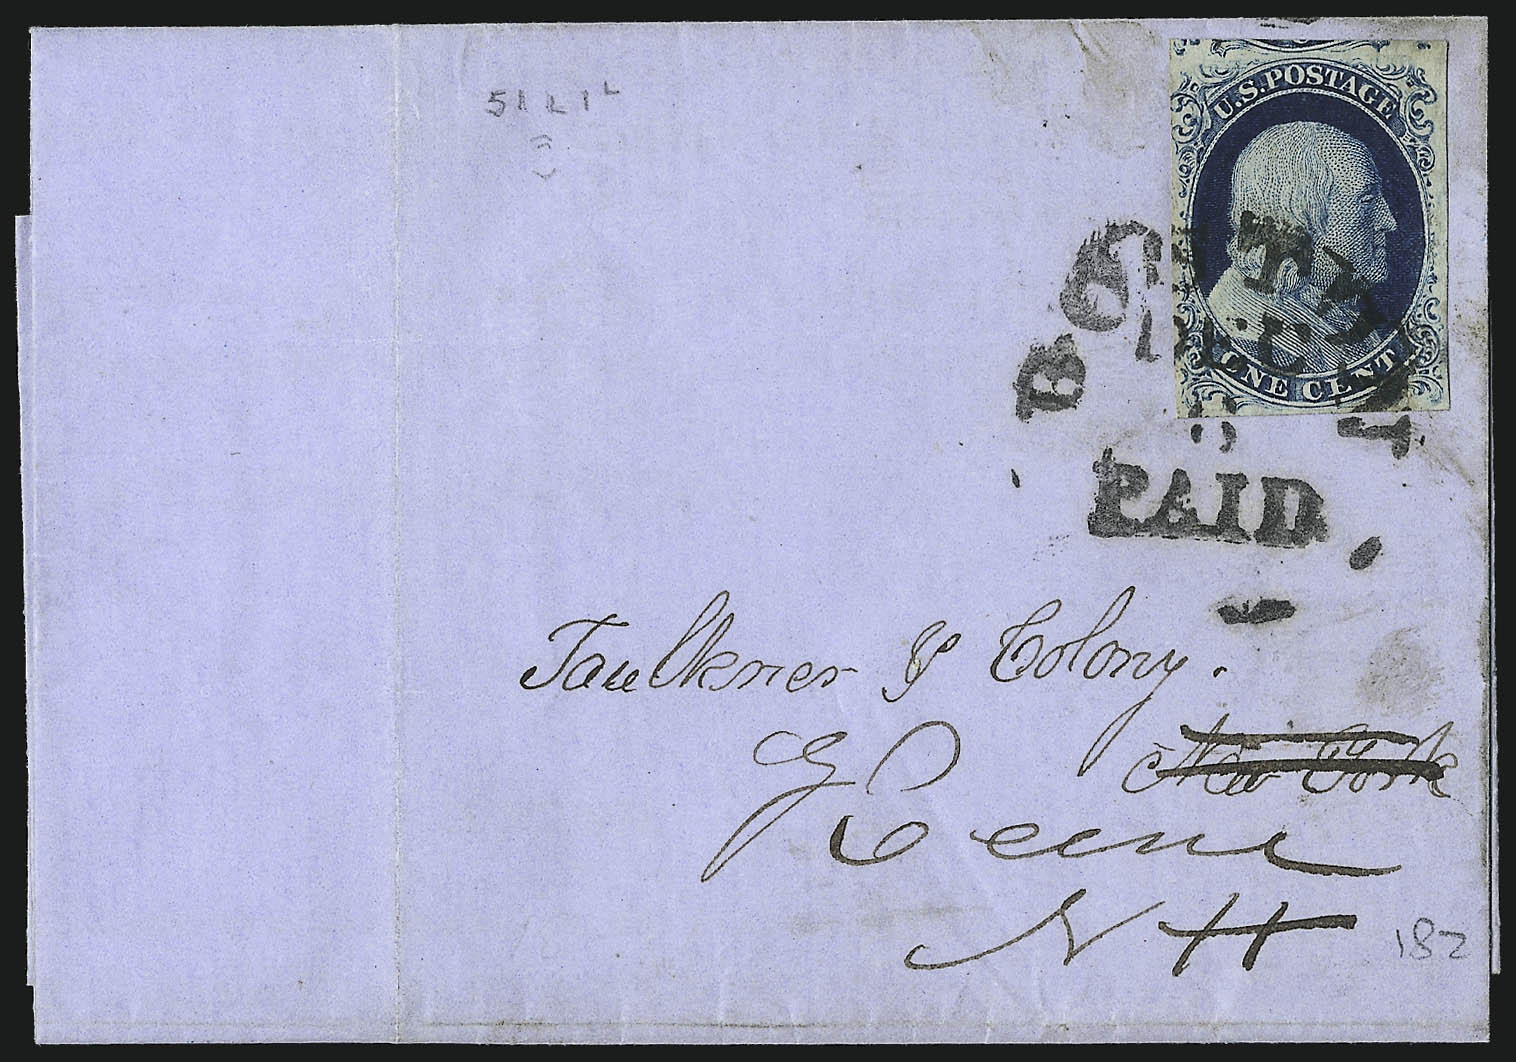 51 R 1 L
U.S. POSTAGE
ONE CENT
BOSTON
DEC
PAID
Faulkner & Colony.
New York
Keene
NH
182